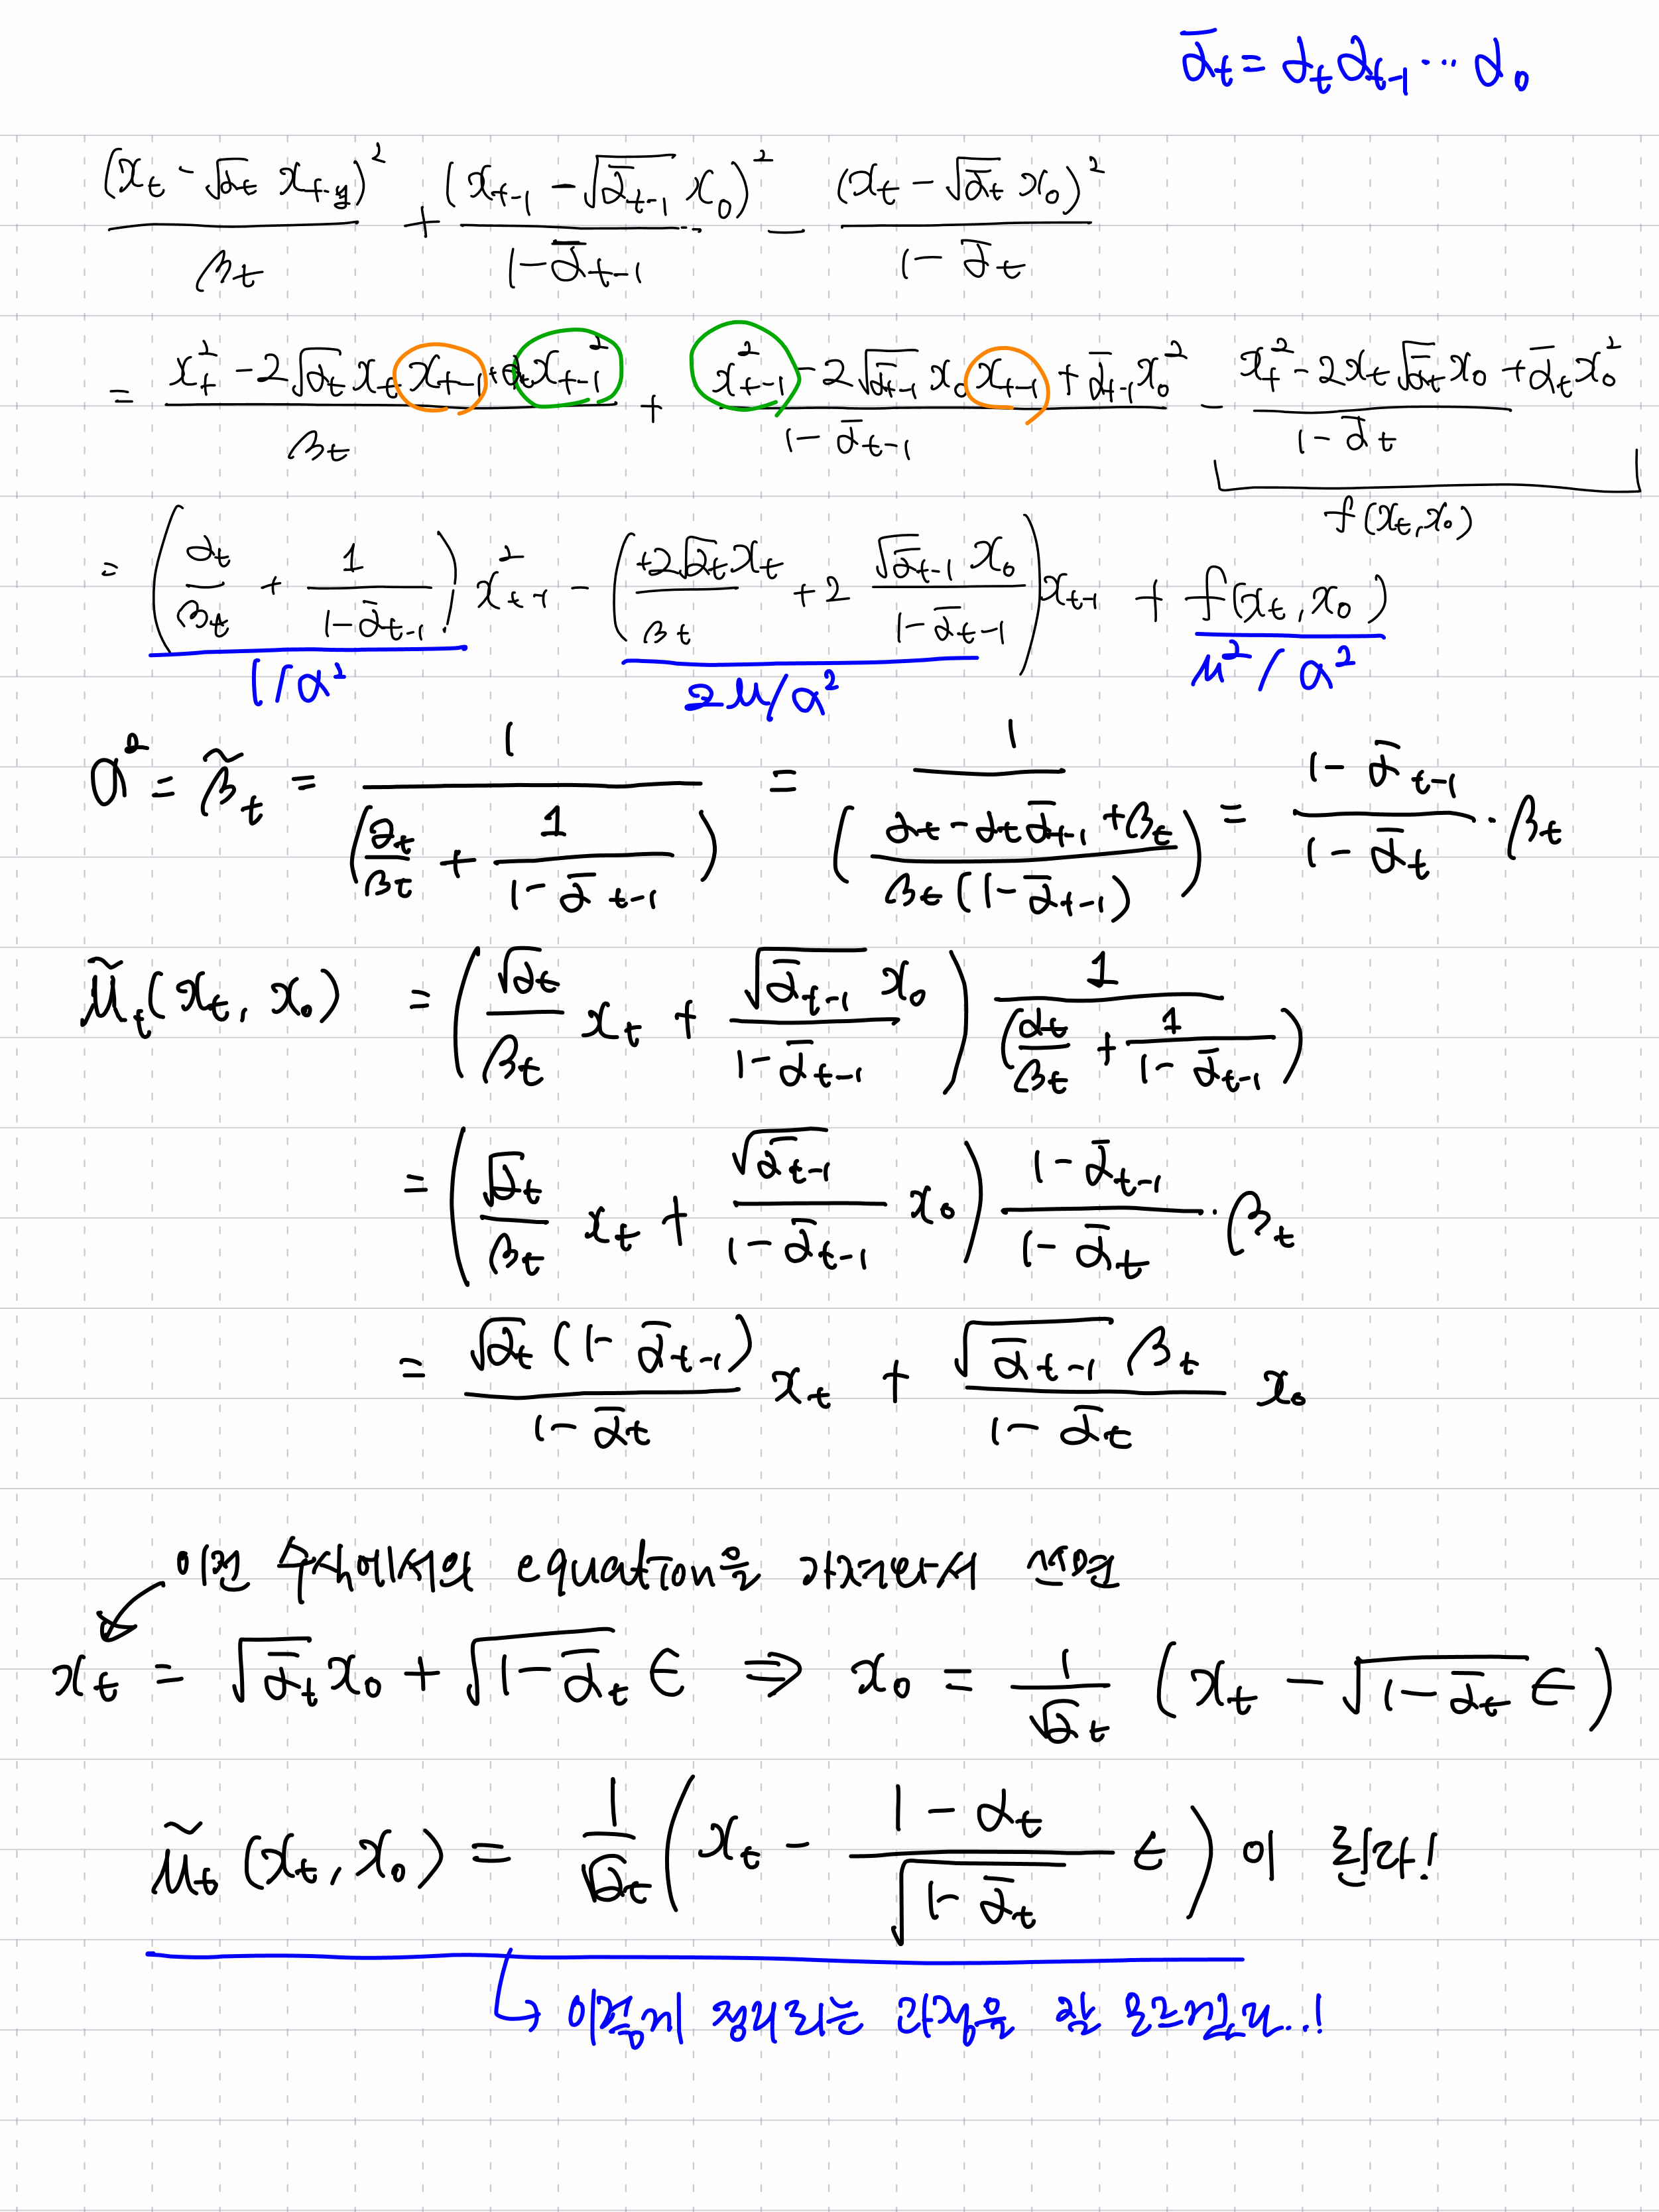 ᾱₜ = αₜ αₜ₋₁ ⋯ α₀
(xₜ - √αₜ xₜ₋₁)² / βₜ + (xₜ₋₁ - √ᾱₜ₋₁ x₀)² / (1-ᾱₜ₋₁) - (xₜ - √ᾱₜ x₀)² / (1-ᾱₜ)
= (xₜ² - 2√αₜ xₜ xₜ₋₁ + αₜ xₜ₋₁²) / βₜ + (xₜ₋₁² - 2√ᾱₜ₋₁ x₀ xₜ₋₁ + ᾱₜ₋₁ x₀²) / (1-ᾱₜ₋₁) - (xₜ² - 2xₜ √ᾱₜ x₀ + ᾱₜ x₀²) / (1-ᾱₜ)
f(xₜ, x₀)
= (αₜ/βₜ + 1/(1-ᾱₜ₋₁)) xₜ₋₁² - (+2√αₜ xₜ / βₜ + 2 √ᾱₜ₋₁ x₀ / (1-ᾱₜ₋₁)) xₜ₋₁ + f(xₜ, x₀)
1/σ² 2μ/σ² μ²/σ²
σ² = β̃ₜ = 1 / (αₜ/βₜ + 1/(1-ᾱₜ₋₁)) = 1 / ((αₜ - αₜᾱₜ₋₁ + βₜ) / (βₜ(1-ᾱₜ₋₁))) = (1-ᾱₜ₋₁)/(1-ᾱₜ) · βₜ
μ̃ₜ(xₜ, x₀) = (√αₜ/βₜ xₜ + √ᾱₜ₋₁ x₀ / (1-ᾱₜ₋₁)) 1 / (αₜ/βₜ + 1/(1-ᾱₜ₋₁))
= (√αₜ/βₜ xₜ + √ᾱₜ₋₁/(1-ᾱₜ₋₁) x₀) (1-ᾱₜ₋₁)/(1-ᾱₜ) · βₜ
= √αₜ(1-ᾱₜ₋₁)/(1-ᾱₜ) xₜ + √ᾱₜ₋₁ βₜ/(1-ᾱₜ) x₀
이전 수식에서의 equation을 가져와서 전개
xₜ = √ᾱₜ x₀ + √(1-ᾱₜ) ϵ ⇒ x₀ = 1/√αₜ (xₜ - √(1-ᾱₜ) ϵ)
μ̃ₜ(xₜ, x₀) = 1/√αₜ (xₜ - (1-αₜ)/√(1-ᾱₜ) ϵ) 이 된다!
↳ 이렇게 정리되는 과정을 잘 모르겠다..!